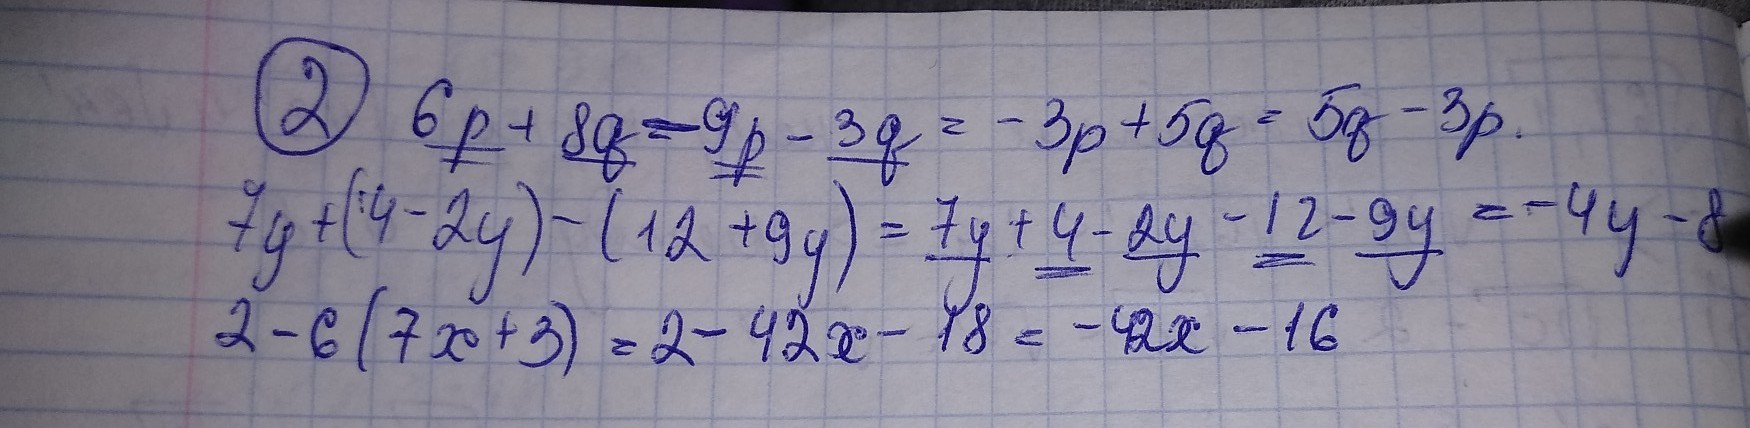 2 6p + 8q - 9p - 3q = -3p + 5q = 5q - 3p.
7y + (4 - 2y) - (12 + 9y) = 7y + 4 - 2y - 12 - 9y = -4y - 8
2 - 6(7x + 3) = 2 - 42x - 18 = -42x - 16